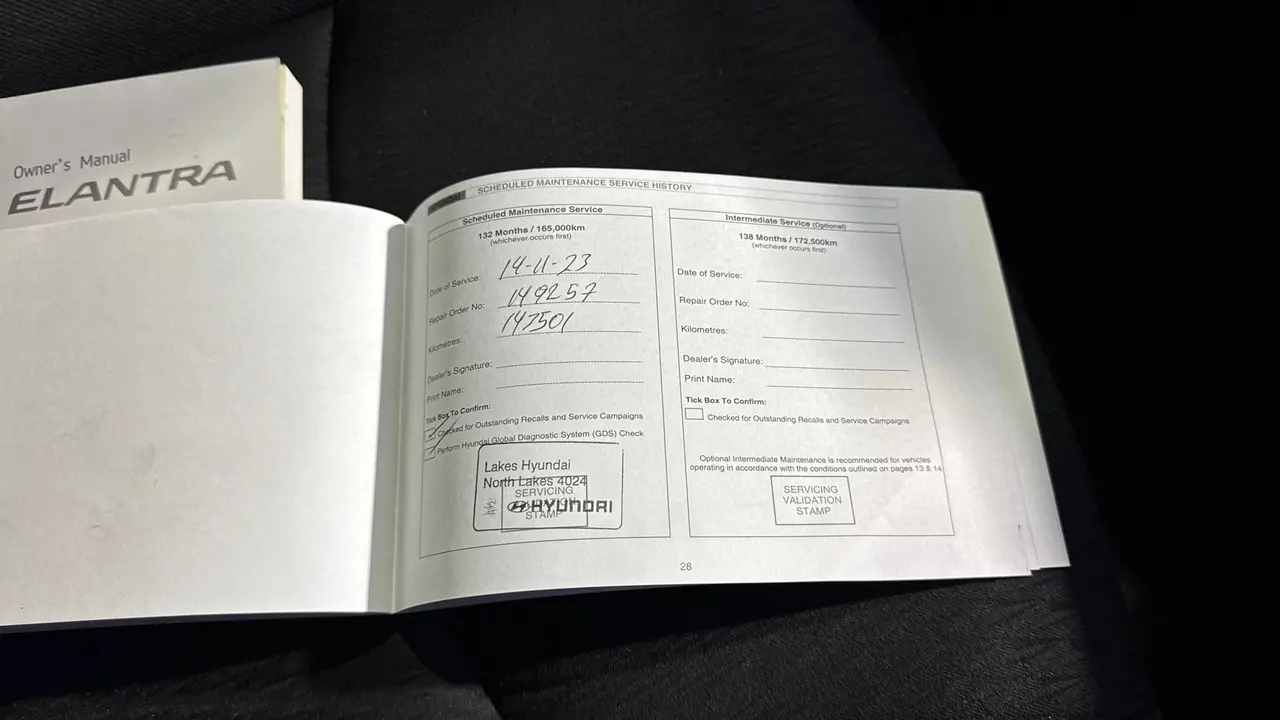 Owner's Manual
ELANTRA
HYUNDAI
SCHEDULED MAINTENANCE SERVICE HISTORY
Scheduled Maintenance Service
132 Months / 165,000km
(whichever occurs first)
Date of Service: 14-11-23
Repair Order No: 149257
Kilometres: 147501
Dealer's Signature:
Print Name:
Tick Box To Confirm:
Checked for Outstanding Recalls and Service Campaigns
Perform Hyundai Global Diagnostic System (GDS) Check
Lakes Hyundai
North Lakes 4024
SERVICING
VALIDATION
STAMP
HYUNDAI
Intermediate Service (Optional)
138 Months / 172,500km
(whichever occurs first)
Date of Service:
Repair Order No:
Kilometres:
Dealer's Signature:
Print Name:
Tick Box To Confirm:
Checked for Outstanding Recalls and Service Campaigns
Optional Intermediate Maintenance is recommended for vehicles
operating in accordance with the conditions outlined on pages 13 & 14
SERVICING
VALIDATION
STAMP
28